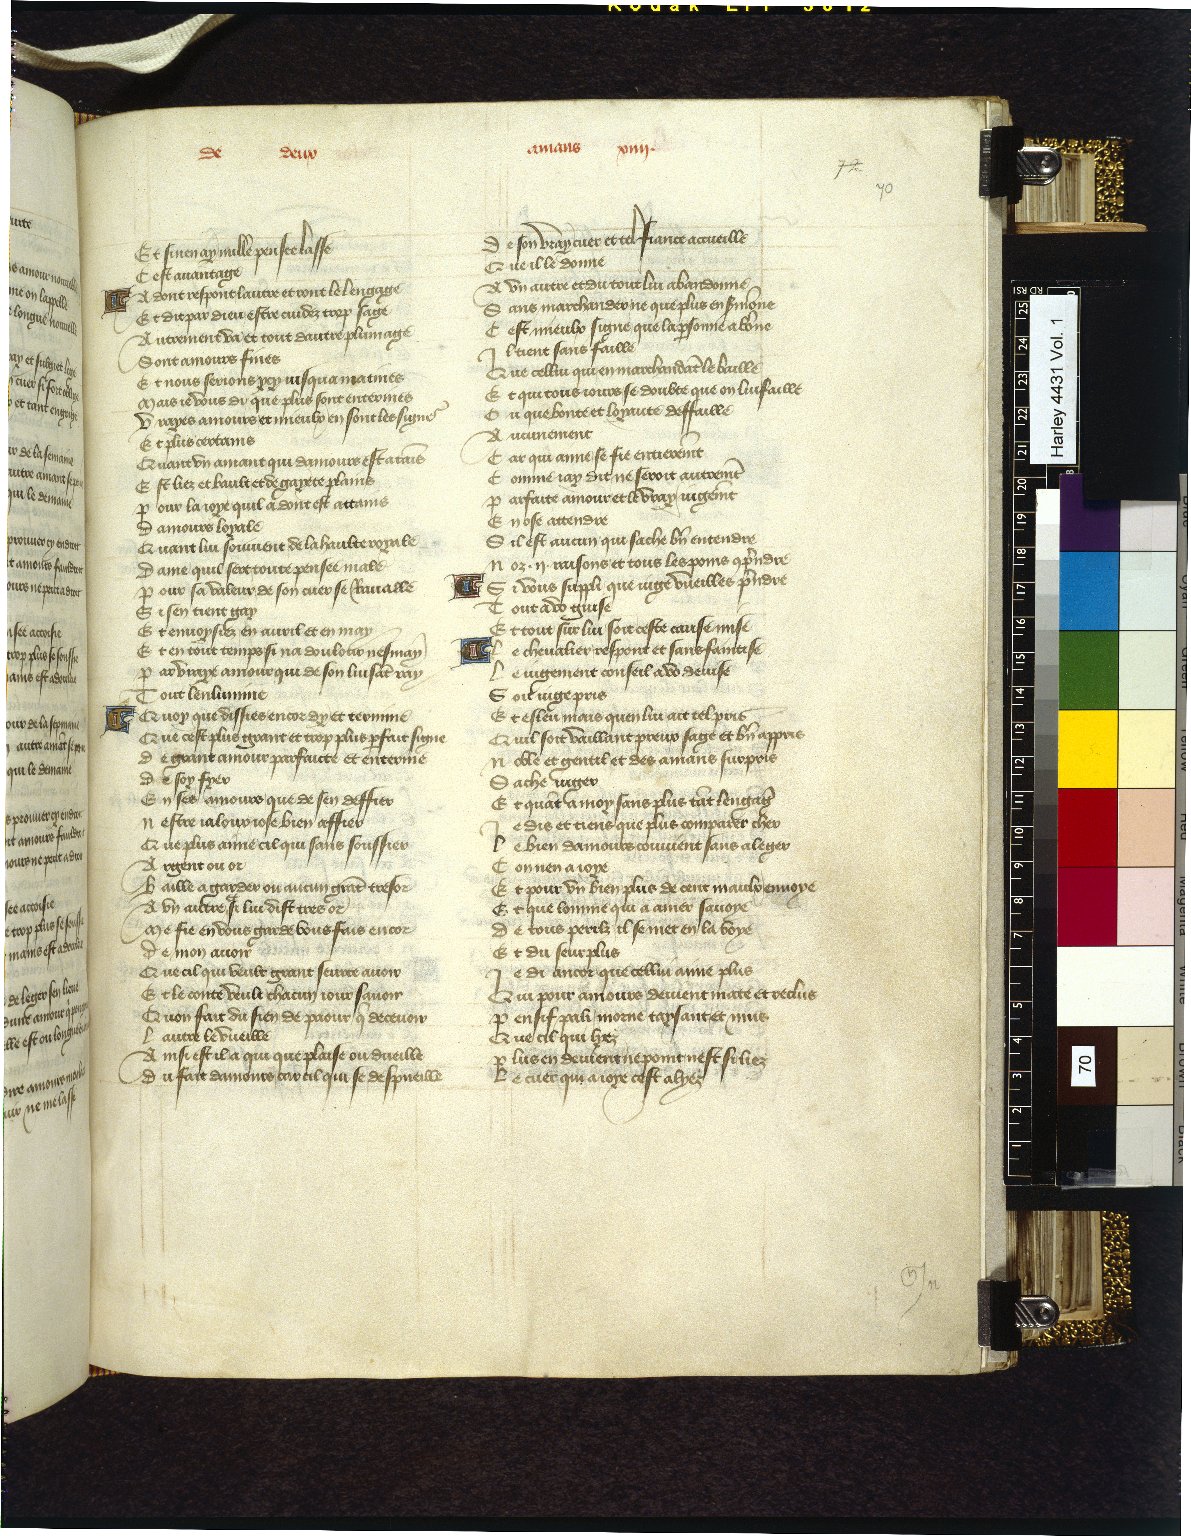 Kodak
de deux
amans xiiii.
72
70
Et si men ay mille pensee lasse
Cest auantage
Adont respont lautre et tout le lengage
Et dit par dieu estre cuidez trop sage
Autrement va et tout dautre plumage
Sont amours fines
Et nous serions icy iusqua matines
Mais ie vous dy que plus sont enterines
Vrayes amours et mieulx en sont les signes
Et plus certains
Quant vn amant qui damours est atains
Est liez et bault et de gayete plains
Pour la ioye quil a dont est attains
Damours loyale
Quant lui souuient de la haulte royale
Dame quil sert toute pensee male
Pour sa valeur de son cuer se trauaille
Si sen tient gay
Et enuoysiez en auril et en may
Et en tout temps si na doulour nesmay
Par vraye amour qui de son lui sat ray
Tout lenlumine
Quoy que dissies encor dy et termine
Que cest plus grant et trop plus pfait signe
De grant amour parfaicte et enterine
De soy fyer
En ses amours que de sen deffier
Nestre ialoux iose bien affier
Que plus aime cil qui sans soussier
Argent ou or
Baille a garder ou aucun grat tresor
A vn autre si lui dist tres or
Me fie en vous garde vous fais encor
De mon auoir
Que cil qui veult grant seurte auoir
Et le conte veult chacun iour sauoir
Quon fait du sien de paour q deceuoir
Lautre le vueille
Ainsi est il a qui que plaise ou dueille
Du fait damours car cil qui se despueille
De son vray cuer et tel fiance accueille
Que il le donne
A vn autre et du tout lui abandonne
Sans marchander ne que plus en smone
Cest mieulx signe que la psonne a bone
Il tient sans faille
Que cellui qui en marchandat le baille
Et qui tous iours se doubte que on lui faille
Ou que bonte et loyaute deffaille
Aucunement
Car qui aime se fie entierent
Comme iay dit ne seroit autremt
Parfaite amour et le vray iugemt
En ose attendre
Sil est aucun qui sache bn entendre
Noz .ij. raisons et tous les poins qprndre
Si vous suppli que iuge vueilles prndre
Tout a vo guise
Et tout sur lui soit ceste cause mise
Le cheualier respont et sans faintise
Le iugement conseil a vo deuise
Soit iuge pris
Et esleu mais quen lui ait tel pris
Quil soit vaillant preux sage et bn appris
Noble et gentil et des amans surpris
Sache iuger
Et quat a moy sans plus tat lengag
Ie dis et tiens que plus comparer cher
Le bien damours conuient sans aleger
Con nen a ioye
Et pour vn bien plus de cent maulx enuoye
Et que lomme qui a amer sauoye
De tous perilz il se met en la voye
Et du seurplus
Ie di ancor que cellui aime plus
Qui pour amours deuient mate et reclus
Pensif pali morne taysant et mus
Que cil qui lyez
Plus en deuient ne point nest si liez
Le cuer qui a ioye cest alyez
Harley 4431 Vol. 1
70